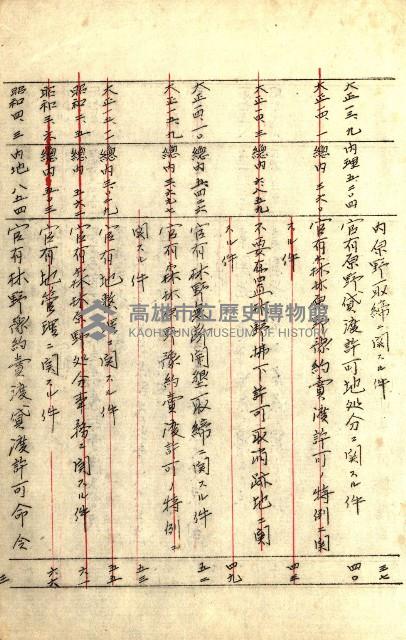 内原野取締ニ関スル件 三七
大正一三、九 内理五二〇四 官有原野貸渡許可地処分ニ関スル件 四〇
大正一四、一 總内 二六〇 官有森林原野豫約賣渡許可ノ特例ニ関
スル件 四三
大正一四、三 總内 六八五九 不要存置林野拂下許可取消跡地ニ関
スル件 四九
大正一四、一〇 總内 官有林野 開墾取締ニ関スル件 五二
大正一三、九 總内 官有森林 豫約賣渡許可ノ特例ニ
関スル件 五三
大正 總内 官有地 ニ関スル件 五五
昭和 總内 官有森林原野処分事務ニ関スル件 六一
昭和 總内 官有地管理ニ関スル件 六六
昭和四、三 内地 八五四 官有林野豫約賣渡貸渡許可命令
三
高雄市立歷史博物館
KAOHSIUNG MUSEUM OF HISTORY